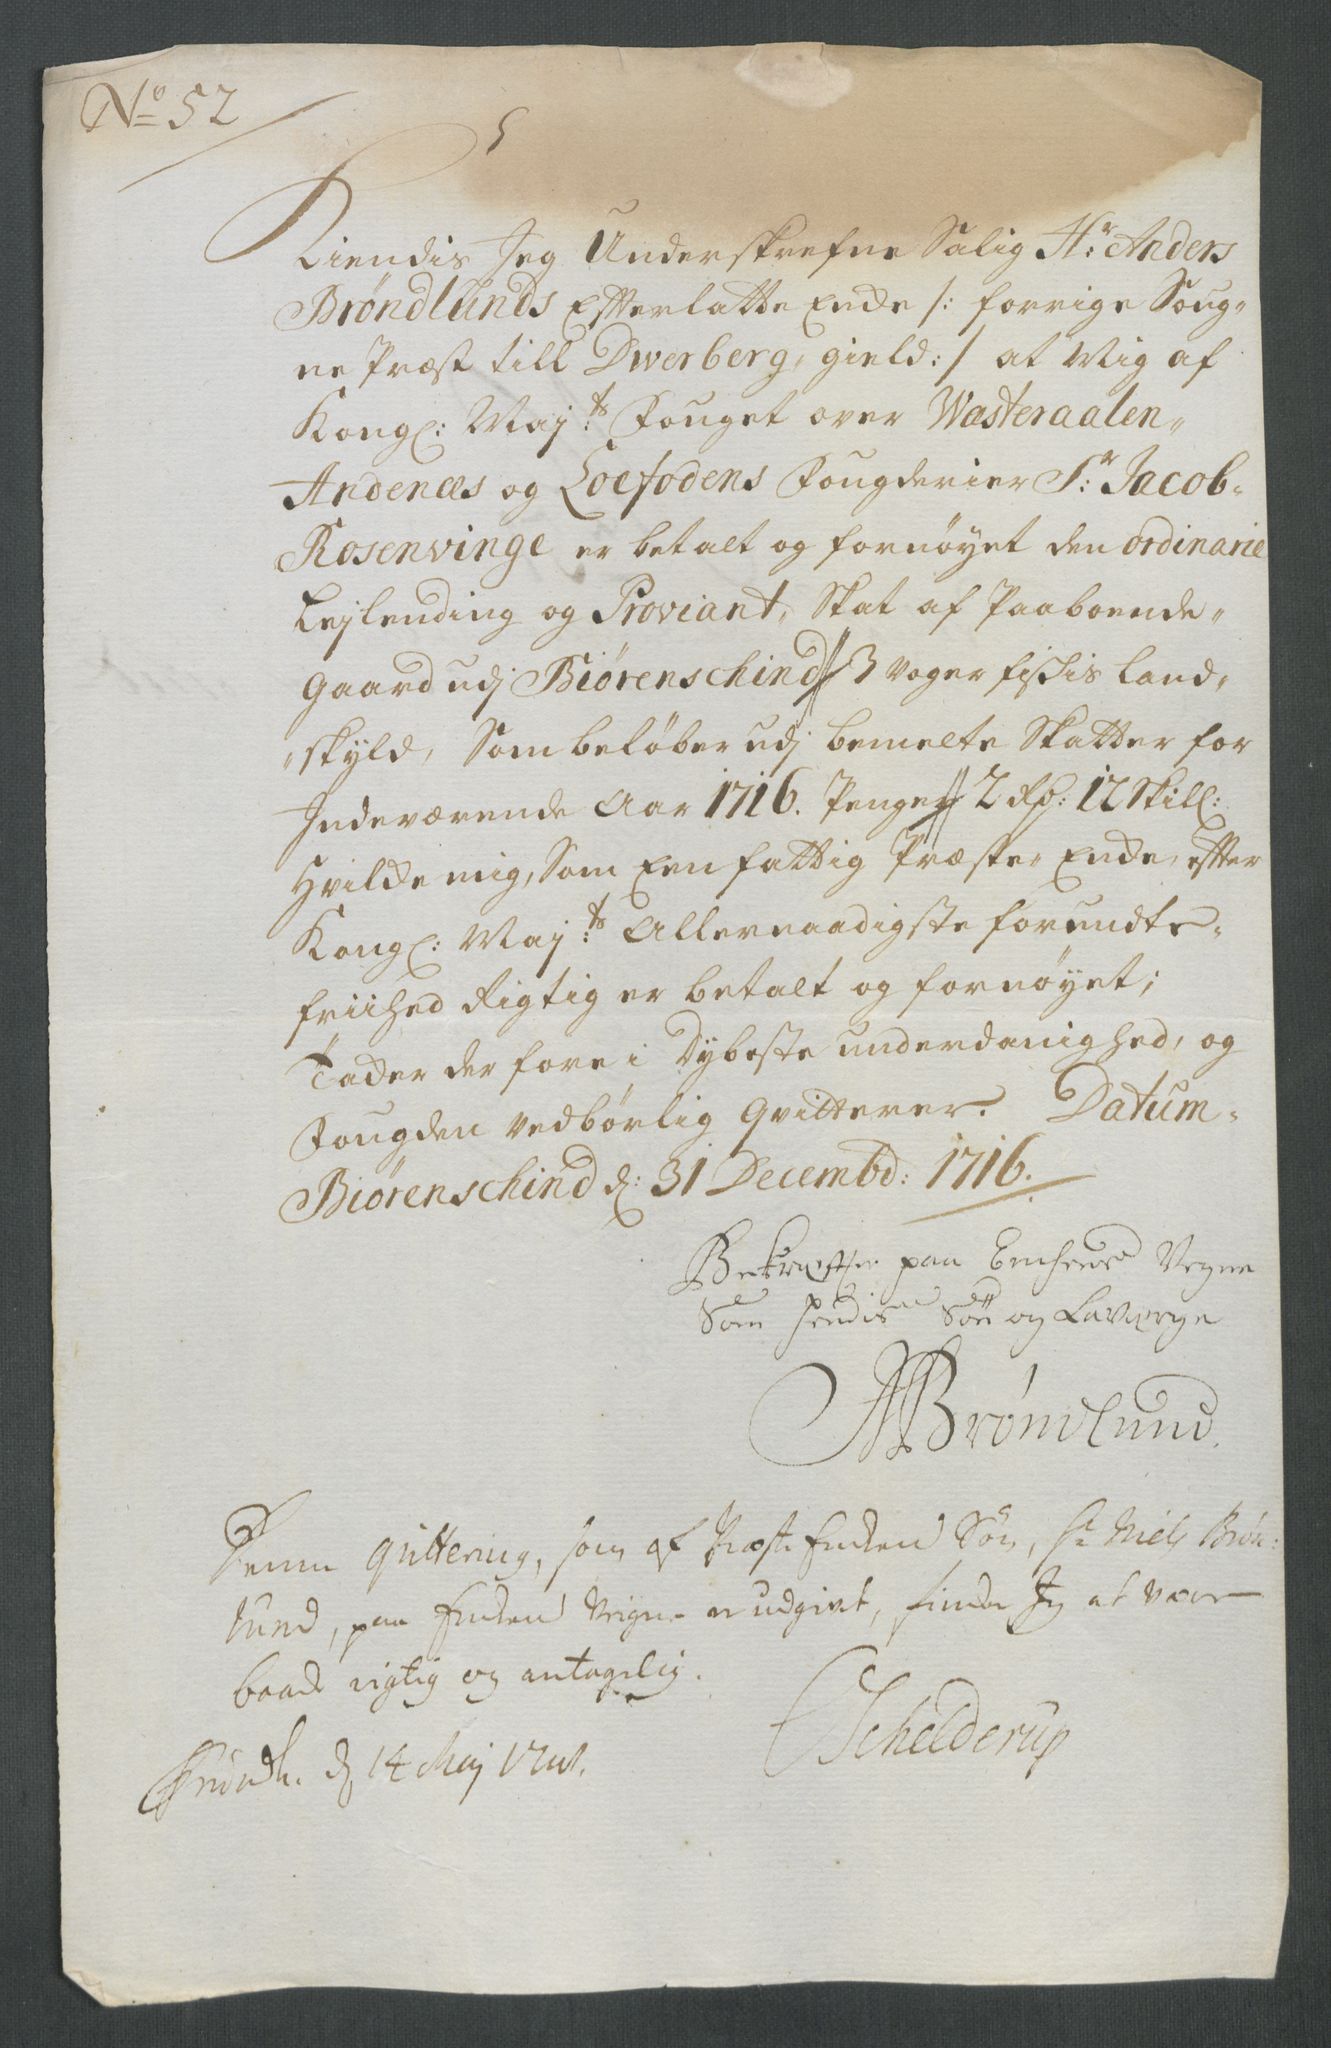 No 52
Kiendis Jeg Underskrefne Salig Hr: Anders
Brøndlunds Efterlatte Encke /: forrige Soug-
ne Præst till Dwerberg, gield :/ at Mig af
Kongl: Mayts: Fouget over Wæsteraalen,
Andenæs og Loefodens Fougderier Sr: Jacob
Rosenvinge er betalt og fornøyet den ordinarie
Lejlending og Proviant, Skat af Paaboende
Gaard udj Biørenschind 3 voger fiskis land,
skyld, Som beløber udj bemelte Skatter for
Indeværende Aar 1716. Penger 2 Rd: 12 Skill:
Hvilde mig, Som Een fattig Præste, Encke, efter
Kongl: Mayts: Allernaadigste forundte
friihed Rigtig er betalt og fornøyet;
Tacker der fore i Dybeste underdanighed, og
Fougden vedbørlig Qvitterer. Datum
Biørenschind d: 31 Decembd: 1716.
Bekræfter paa Enchens Vegne
Som hendis Søn og Laverge
Brøndlund.
Denne qvittering, som af Præste Enckens Søn, Hr Niels Brøn-
lund, paa Enckens Veigne er udgivet, finder Jeg at være
baade rigtig og antagelig.
Trundh. d 14 Maj
Schelderup